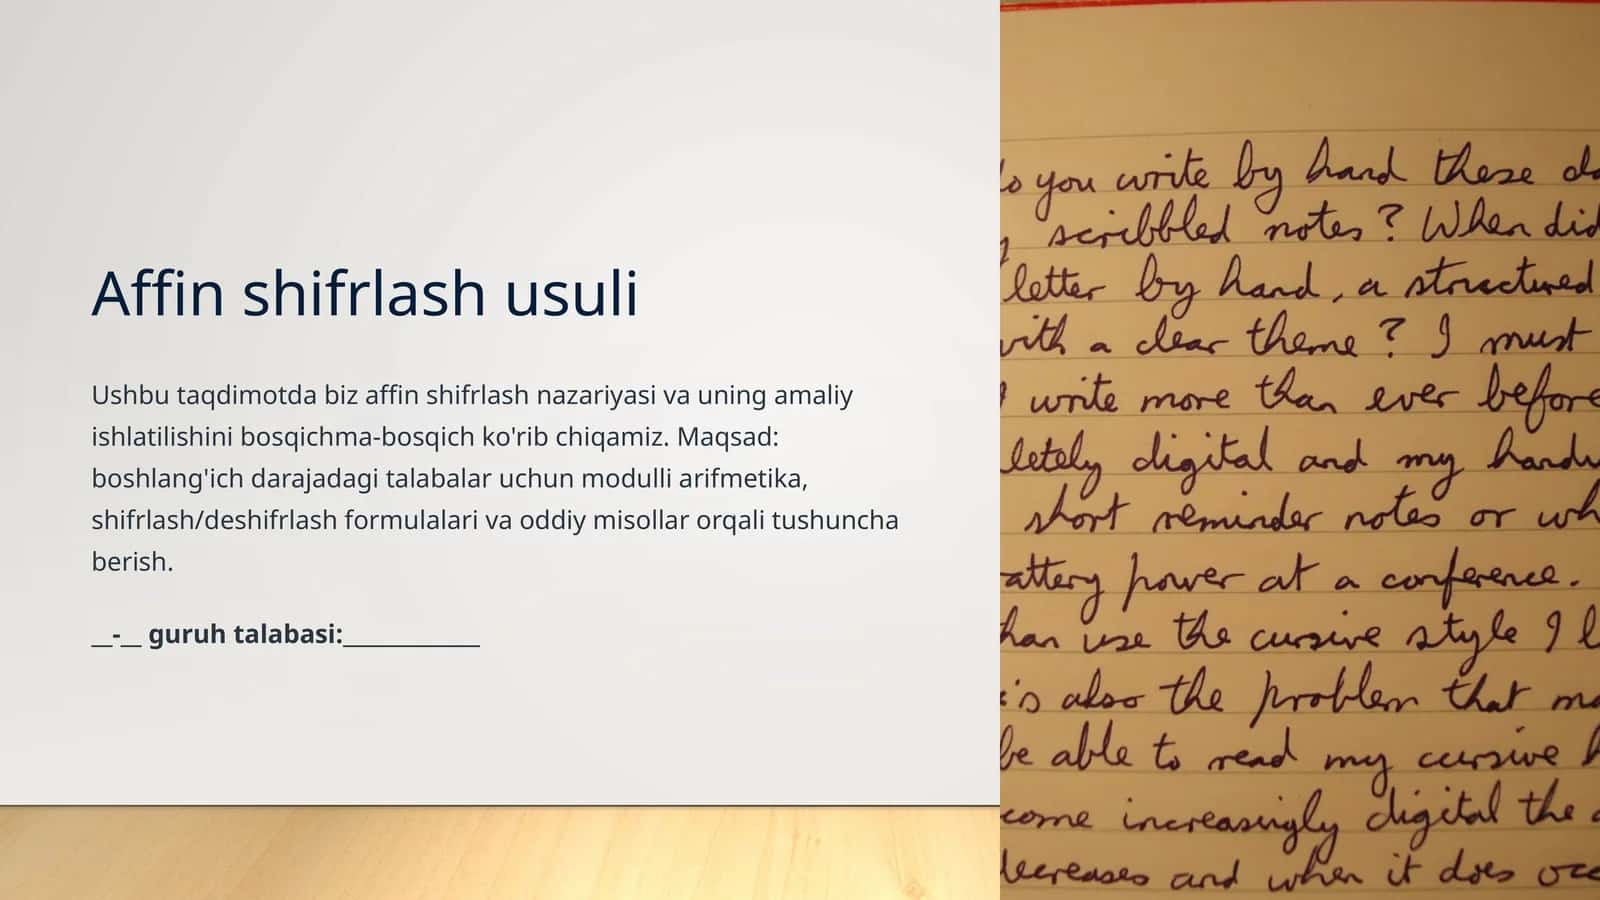 Affin shifrlash usuli
Ushbu taqdimotda biz affin shifrlash nazariyasi va uning amaliy
ishlatilishini bosqichma-bosqich ko'rib chiqamiz. Maqsad:
boshlang'ich darajadagi talabalar uchun modulli arifmetika,
shifrlash/deshifrlash formulalari va oddiy misollar orqali tushuncha
berish.
__-__ guruh talabasi:___________
you write by hand these
scribbled notes? When did
letter by hand, a structured
with a clear theme? I must
write more than ever before
digital and my
short reminder notes or
power at a conference.
than use the cursive style I
is also the problem that
be able to read my cursive
come increasingly digital the
decreases and when it does